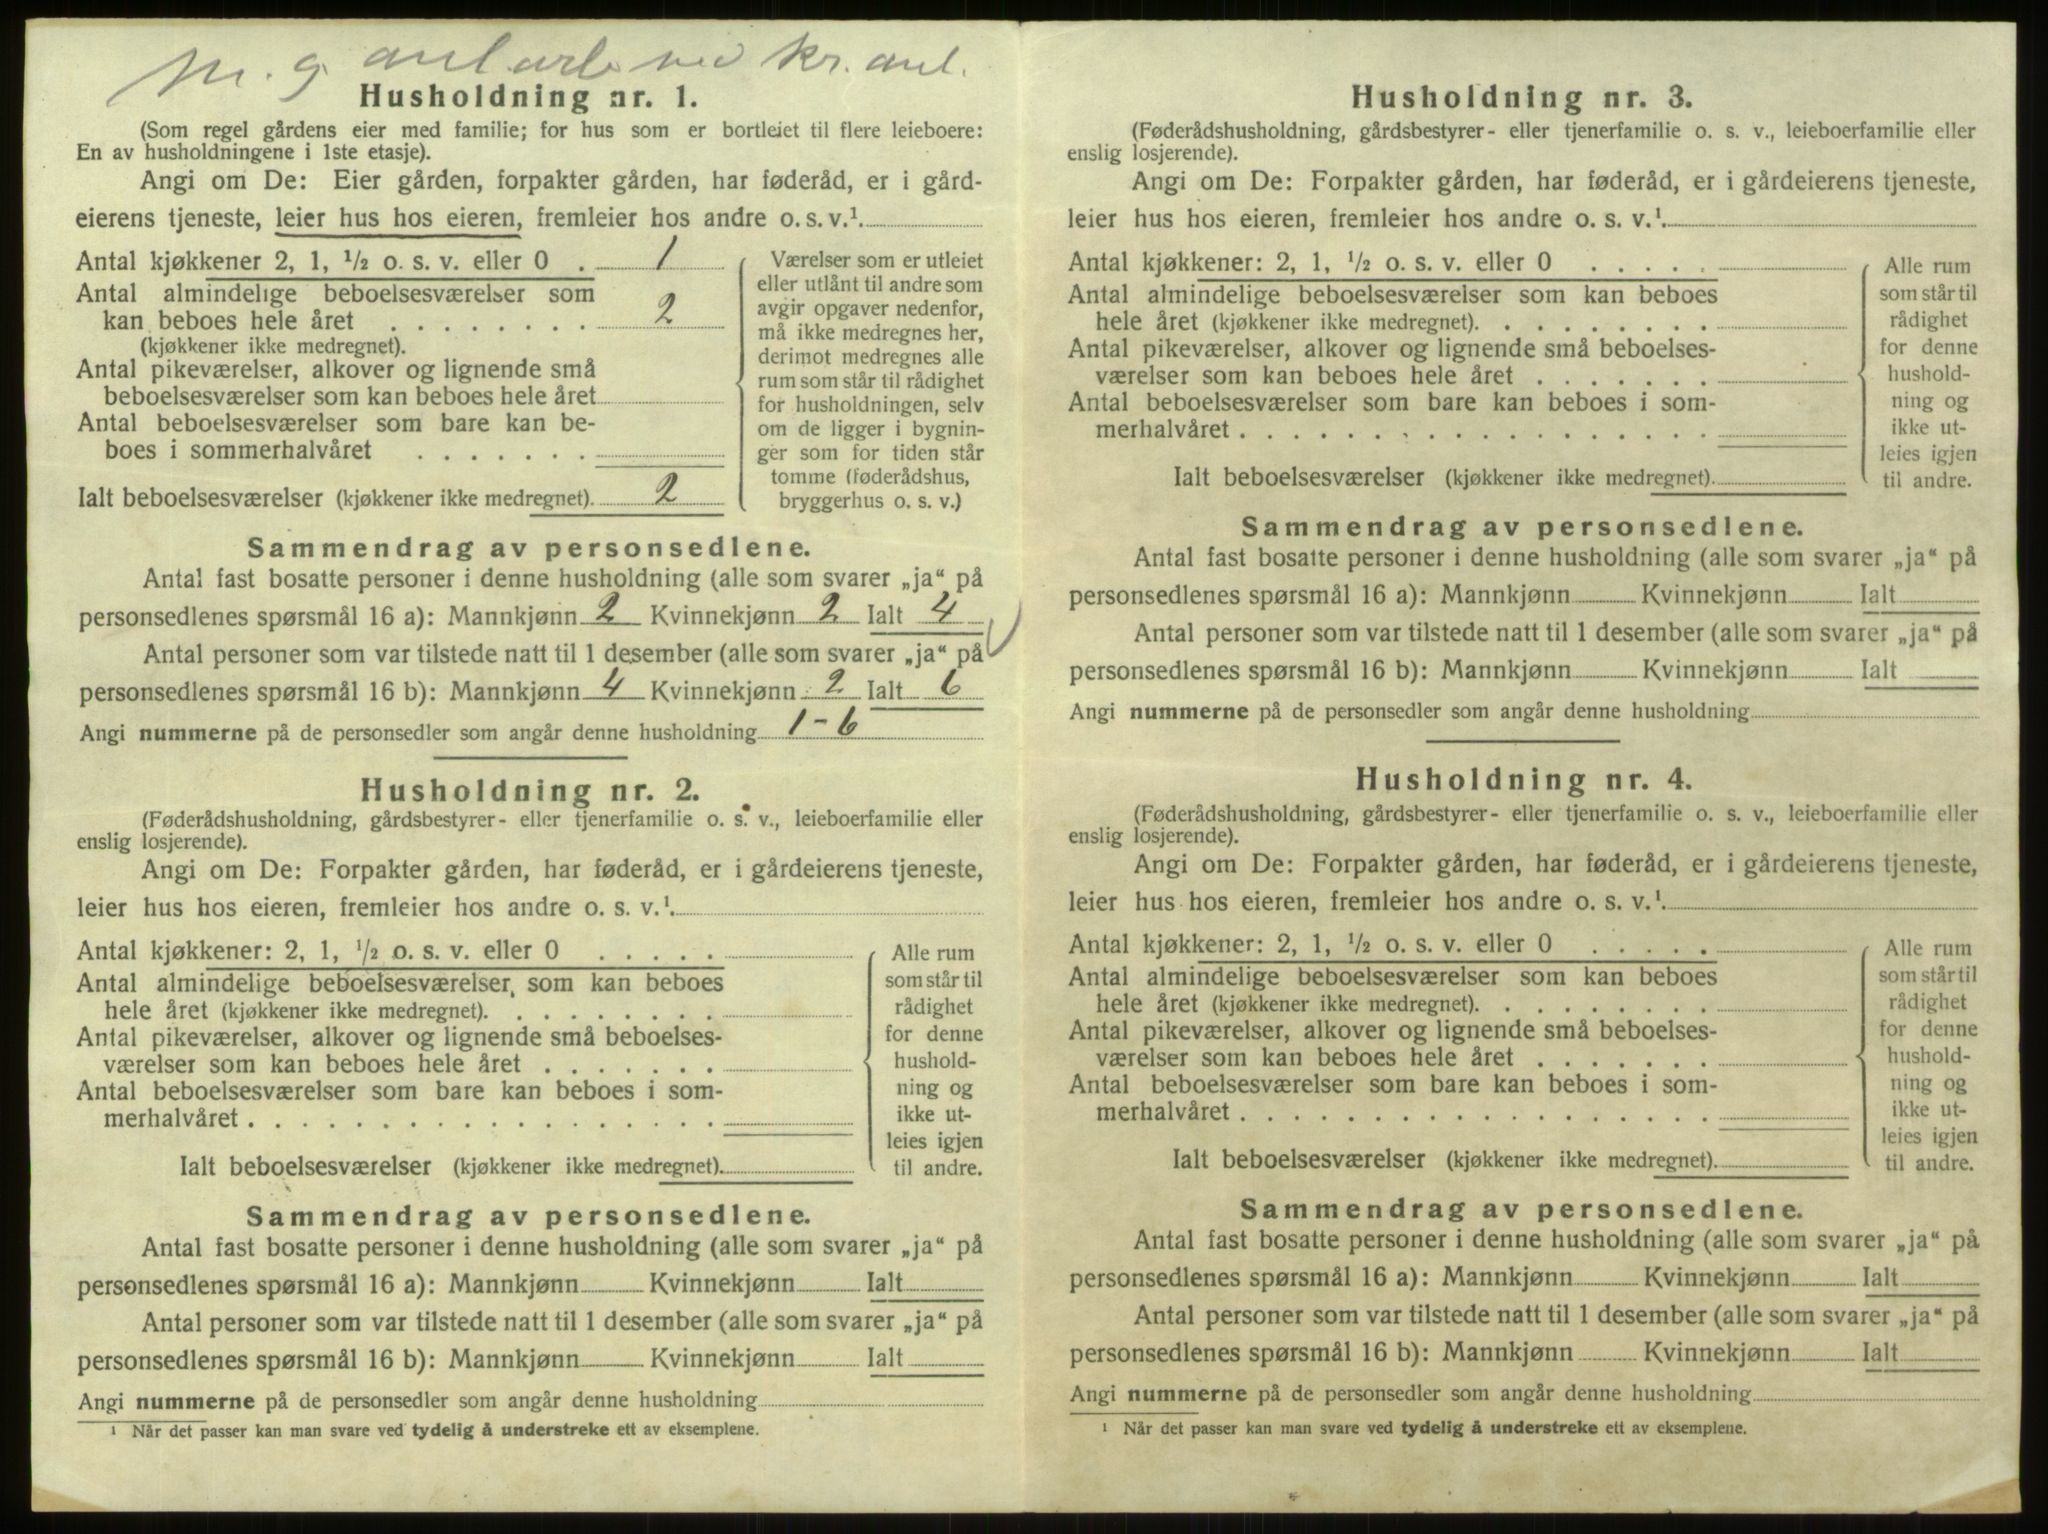 m. g anl.arb. ved kr. anl.
Husholdning nr. 1.
(Som regel gårdens eier med familie; for hus som er bortleiet til flere leieboere:
En av husholdningene i 1ste etasje).
Angi om De: Eier gården, forpakter gården, har føderåd, er i gård-
eierens tjeneste, leier hus hos eieren, fremleier hos andre o. s. v.¹
Antal kjøkkener 2, 1, ½ o. s. v. eller 0 . 1
Antal almindelige beboelsesværelser som
kan beboes hele året . . . . . . . . 2
(kjøkkener ikke medregnet).
Antal pikeværelser, alkover og lignende små
beboelsesværelser som kan beboes hele året
Antal beboelsesværelser som bare kan be-
boes i sommerhalvåret . . . . . . .
Ialt beboelsesværelser (kjøkkener ikke medregnet). 2
Værelser som er utleiet
eller utlånt til andre som
avgir opgaver nedenfor,
må ikke medregnes her,
derimot medregnes alle
rum som står til rådighet
for husholdningen, selv
om de ligger i bygnin-
ger som for tiden står
tomme (føderådshus,
bryggerhus o. s. v.)
Sammendrag av personsedlene.
Antal fast bosatte personer i denne husholdning (alle som svarer „ja“ på
personsedlenes spørsmål 16 a): Mannkjønn 2 Kvinnekjønn 2 Ialt 4
Antal personer som var tilstede natt til 1 desember (alle som svarer „ja“ på
personsedlenes spørsmål 16 b): Mannkjønn 4 Kvinnekjønn 2 Ialt 6
Angi nummerne på de personsedler som angår denne husholdning 1-6
Husholdning nr. 2.
(Føderådshusholdning, gårdsbestyrer- eller tjenerfamilie o. s. v., leieboerfamilie eller
enslig losjerende).
Angi om De: Forpakter gården, har føderåd, er i gårdeierens tjeneste,
leier hus hos eieren, fremleier hos andre o. s. v.¹
Antal kjøkkener: 2, 1, ½ o. s. v. eller 0 . . . . .
Antal almindelige beboelsesværelser, som kan beboes
hele året (kjøkkener ikke medregnet). . . . . . . . .
Antal pikeværelser, alkover og lignende små beboelses-
værelser som kan beboes hele året . . . . . . .
Antal beboelsesværelser som bare kan beboes i som-
merhalvåret . . . . . . . . . . . . . . . . . .
Ialt beboelsesværelser (kjøkkener ikke medregnet).
Alle rum
som står til
rådighet
for denne
hushold-
ning og
ikke ut-
leies igjen
til andre.
Sammendrag av personsedlene.
Antal fast bosatte personer i denne husholdning (alle som svarer „ja“ på
personsedlenes spørsmål 16 a): Mannkjønn Kvinnekjønn Ialt
Antal personer som var tilstede natt til 1 desember (alle som svarer „ja“ på
personsedlenes spørsmål 16 b): Mannkjønn Kvinnekjønn Ialt
Angi nummerne på de personsedler som angår denne husholdning
¹ Når det passer kan man svare ved tydelig å understreke ett av eksemplene.
Husholdning nr. 3.
(Føderådshusholdning, gårdsbestyrer- eller tjenerfamilie o. s. v., leieboerfamilie eller
enslig losjerende).
Angi om De: Forpakter gården, har føderåd, er i gårdeierens tjeneste,
leier hus hos eieren, fremleier hos andre o. s. v.¹
Antal kjøkkener: 2, 1, ½ o. s. v. eller 0 . . . . .
Antal almindelige beboelsesværelser som kan beboes
hele året (kjøkkener ikke medregnet). . . . . . . . .
Antal pikeværelser, alkover og lignende små beboelses-
værelser som kan beboes hele året . . . . . . .
Antal beboelsesværelser som bare kan beboes i som-
merhalvåret . . . . . . . . . . . . . . . . . .
Ialt beboelsesværelser (kjøkkener ikke medregnet).
Alle rum
som står til
rådighet
for denne
hushold-
ning og
ikke ut-
leies igjen
til andre.
Sammendrag av personsedlene.
Antal fast bosatte personer i denne husholdning (alle som svarer „ja“ på
personsedlenes spørsmål 16 a): Mannkjønn Kvinnekjønn Ialt
Antal personer som var tilstede natt til 1 desember (alle som svarer „ja“ på
personsedlenes spørsmål 16 b): Mannkjønn Kvinnekjønn Ialt
Angi nummerne på de personsedler som angår denne husholdning
Husholdning nr. 4.
(Føderådshusholdning, gårdsbestyrer- eller tjenerfamilie o. s. v., leieboerfamilie eller
enslig losjerende).
Angi om De: Forpakter gården, har føderåd, er i gårdeierens tjeneste,
leier hus hos eieren, fremleier hos andre o. s. v.¹
Antal kjøkkener: 2, 1, ½ o. s. v. eller 0 . . . . .
Antal almindelige beboelsesværelser som kan beboes
hele året (kjøkkener ikke medregnet). . . . . . . . .
Antal pikeværelser, alkover og lignende små beboelses-
værelser som kan beboes hele året . . . . . . .
Antal beboelsesværelser som bare kan beboes i som-
merhalvåret . . . . . . . . . . . . . . . . . .
Ialt beboelsesværelser (kjøkkener ikke medregnet).
Alle rum
som står til
rådighet
for denne
hushold-
ning og
ikke ut-
leies igjen
til andre.
Sammendrag av personsedlene.
Antal fast bosatte personer i denne husholdning (alle som svarer „ja“ på
personsedlenes spørsmål 16 a): Mannkjønn Kvinnekjønn Ialt
Antal personer som var tilstede natt til 1 desember (alle som svarer „ja“ på
personsedlenes spørsmål 16 b): Mannkjønn Kvinnekjønn Ialt
Angi nummerne på de personsedler som angår denne husholdning
¹ Når det passer kan man svare ved tydelig å understreke ett av eksemplene.